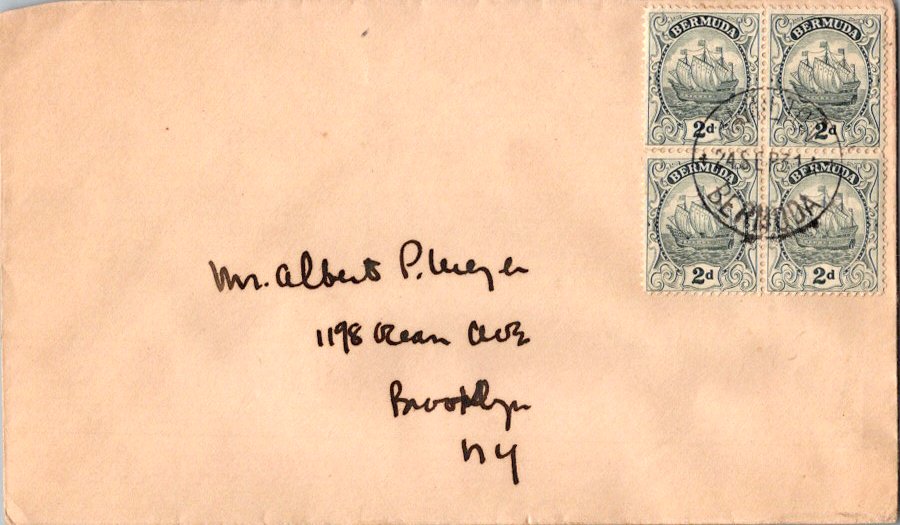 BERMUDA BERMUDA
2d 2d
SEP 31
BERMUDA BERMUDA
BERMUDA
2d 2d
Mr. Albert P. Meyer
1198 Ocean Ave
Brooklyn
NY